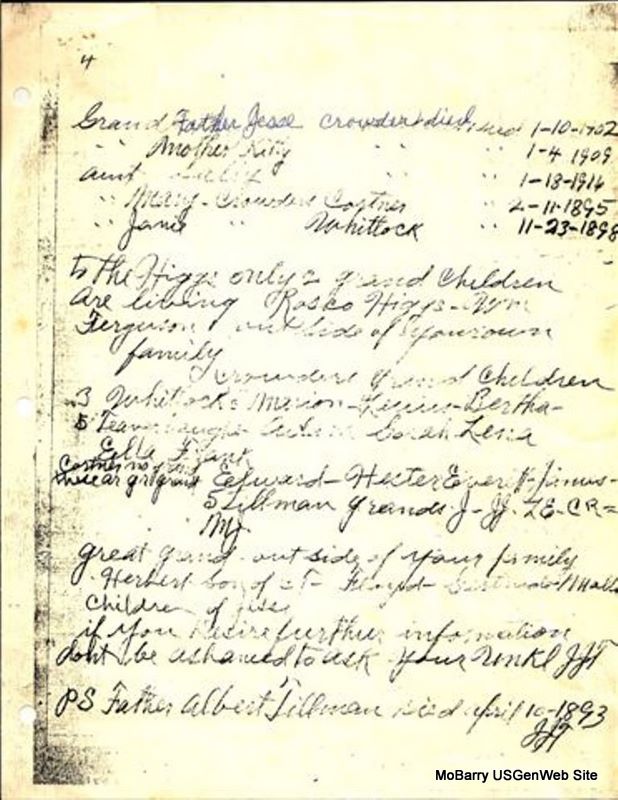 4
Grand Father Jesse crowder died 1-10-1902
" Mother Kitty " " 1-4 1909
aunt " 1-18-1916
" Mary - Crowder Costner " 2-11-1895
" Janie " Whittock " 11-23-1898
to the Higgs only 2 grand Children
are living Rosco Higgs - Wm
Ferguson out side of your own
family
Crowders grand Children
3 Whittocks Marion - - Bertha -
5 Sarah Lena
Ella Frank
Costner no
Edward - Hester Ever -
5 Tillman grands J - JJ - LE - CR =
MJ
great grand out side of your family
Herbert son of - Floyd -
Children of Jess
if you desire further information
dont be ashamed to ask your Unkl JJT
PS Father Albert Tillman died april 10-1893
JJT
MoBarry USGenWeb Site